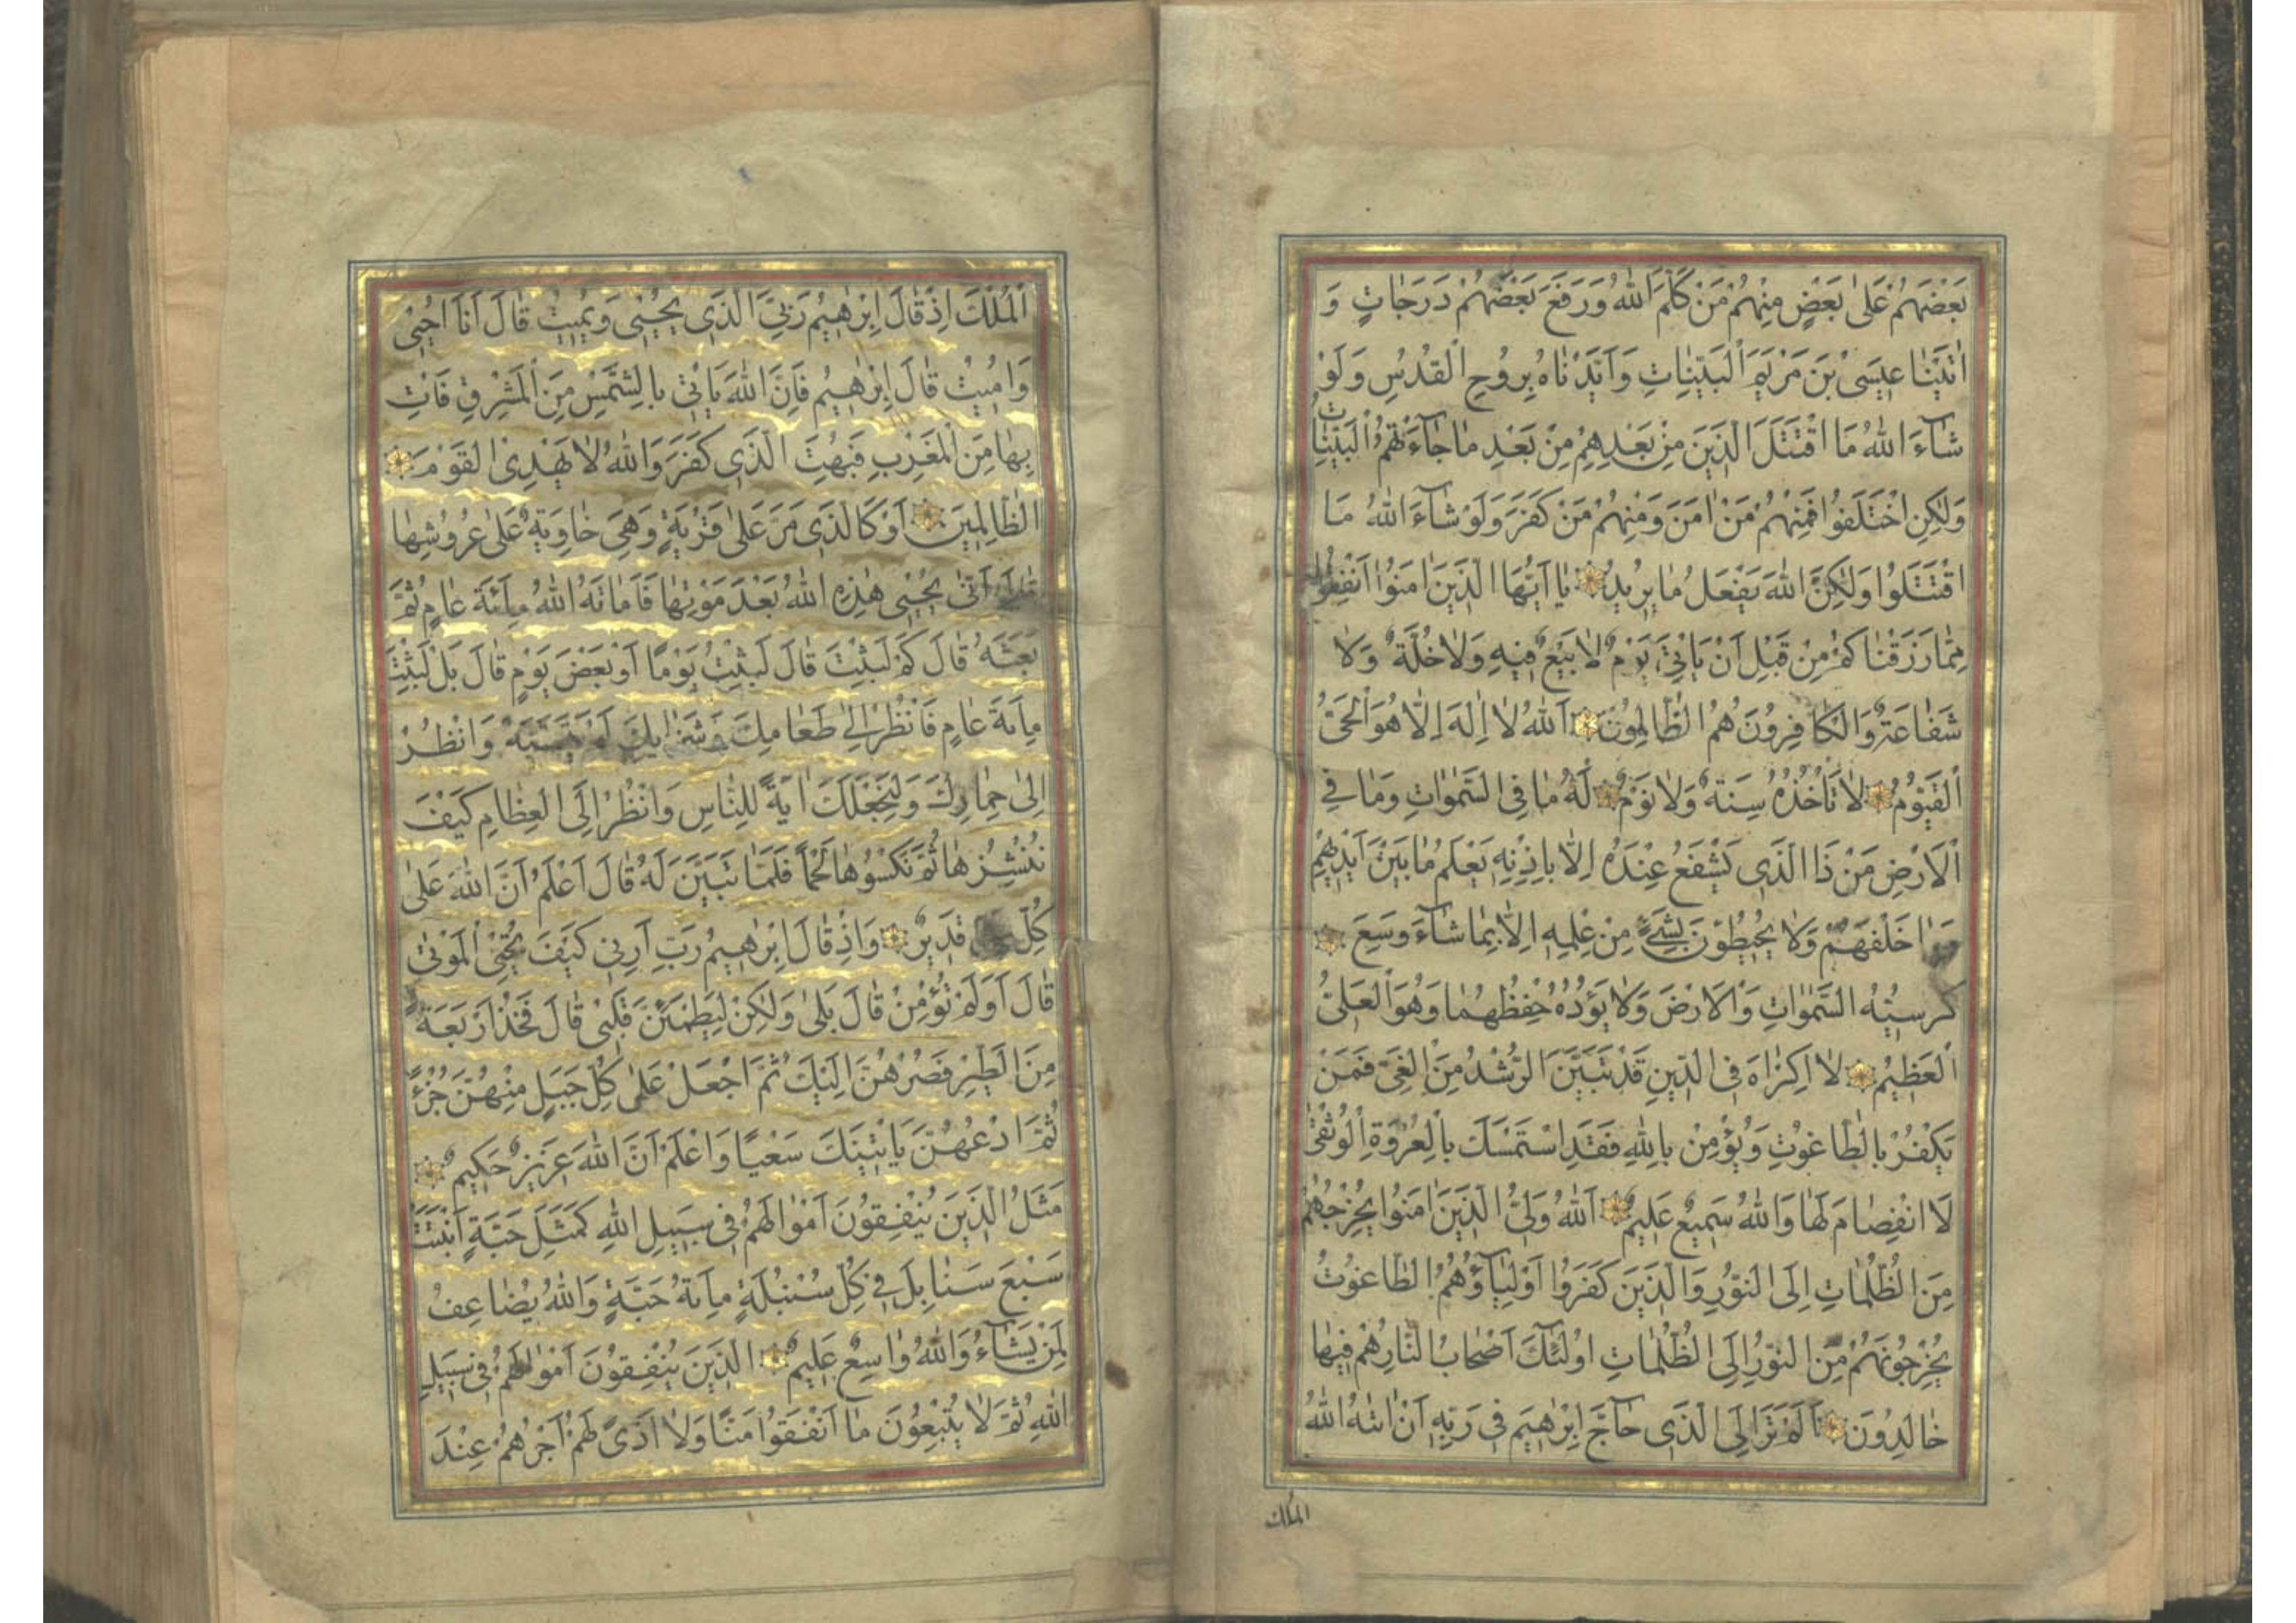 بَعْضَهُمْ عَلٰى بَعْضٍ مِنْهُمْ مَنْ كَلَّمَ اللّٰهُ وَرَفَعَ بَعْضَهُمْ دَرَجَاتٍ وَ
اٰتَيْنَا عِيسَى بْنَ مَرْيَمَ الْبَيِّنَاتِ وَاَيَّدْنَاهُ بِرُوحِ الْقُدُسِ وَلَوْ
شَآءَ اللّٰهُ مَا اقْتَتَلَ الَّذِينَ مِنْ بَعْدِهِمْ مِنْ بَعْدِ مَا جَآءَتْهُمُ الْبَيِّنَاتُ
وَلٰكِنِ اخْتَلَفُوا فَمِنْهُمْ مَنْ اٰمَنَ وَمِنْهُمْ مَنْ كَفَرَ وَلَوْ شَآءَ اللّٰهُ مَا
اقْتَتَلُوا وَلٰكِنَّ اللّٰهَ يَفْعَلُ مَا يُرِيدُ يَا اَيُّهَا الَّذِينَ اٰمَنُوا اَنْفِقُوا
مِمَّا رَزَقْنَاكُمْ مِنْ قَبْلِ اَنْ يَاْتِيَ يَوْمٌ لَا بَيْعٌ فِيهِ وَلَا خُلَّةٌ وَلَا
شَفَاعَةٌ وَالْكَافِرُونَ هُمُ الظَّالِمُونَ اَللّٰهُ لَا اِلٰهَ اِلَّا هُوَ الْحَيُّ
الْقَيُّومُ لَا تَاْخُذُهُ سِنَةٌ وَلَا نَوْمٌ لَهُ مَا فِي السَّمٰوَاتِ وَمَا فِي
الْاَرْضِ مَنْ ذَا الَّذِي يَشْفَعُ عِنْدَهُ اِلَّا بِاِذْنِهِ يَعْلَمُ مَا بَيْنَ اَيْدِيهِمْ
وَمَا خَلْفَهُمْ وَلَا يُحِيطُونَ بِشَيْءٍ مِنْ عِلْمِهِ اِلَّا بِمَا شَآءَ وَسِعَ
كُرْسِيُّهُ السَّمٰوَاتِ وَالْاَرْضَ وَلَا يَؤُدُهُ حِفْظُهُمَا وَهُوَ الْعَلِيُّ
الْعَظِيمُ لَا اِكْرَاهَ فِي الدِّينِ قَدْ تَبَيَّنَ الرُّشْدُ مِنَ الْغَيِّ فَمَنْ
يَكْفُرْ بِالطَّاغُوتِ وَيُؤْمِنْ بِاللّٰهِ فَقَدِ اسْتَمْسَكَ بِالْعُرْوَةِ الْوُثْقٰى
لَا انْفِصَامَ لَهَا وَاللّٰهُ سَمِيعٌ عَلِيمٌ اَللّٰهُ وَلِيُّ الَّذِينَ اٰمَنُوا يُخْرِجُهُمْ
مِنَ الظُّلُمَاتِ اِلَى النُّورِ وَالَّذِينَ كَفَرُوا اَوْلِيَآؤُهُمُ الطَّاغُوتُ
يُخْرِجُونَهُمْ مِنَ النُّورِ اِلَى الظُّلُمَاتِ اُولٰئِكَ اَصْحَابُ النَّارِ هُمْ فِيهَا
خَالِدُونَ اَلَمْ تَرَ اِلَى الَّذِي حَآجَّ اِبْرٰهِيمَ فِي رَبِّهِ اَنْ اٰتٰهُ اللّٰهُ
الملك
الْمُلْكَ اِذْ قَالَ اِبْرٰهِيمُ رَبِّيَ الَّذِي يُحْيِي وَيُمِيتُ قَالَ اَنَا اُحْيِي
وَاُمِيتُ قَالَ اِبْرٰهِيمُ فَاِنَّ اللّٰهَ يَاْتِي بِالشَّمْسِ مِنَ الْمَشْرِقِ فَاْتِ
بِهَا مِنَ الْمَغْرِبِ فَبُهِتَ الَّذِي كَفَرَ وَاللّٰهُ لَا يَهْدِي الْقَوْمَ
الظَّالِمِينَ اَوْ كَالَّذِي مَرَّ عَلٰى قَرْيَةٍ وَهِيَ خَاوِيَةٌ عَلٰى عُرُوشِهَا
قَالَ اَنّٰى يُحْيِي هٰذِهِ اللّٰهُ بَعْدَ مَوْتِهَا فَاَمَاتَهُ اللّٰهُ مِائَةَ عَامٍ ثُمَّ
بَعَثَهُ قَالَ كَمْ لَبِثْتَ قَالَ لَبِثْتُ يَوْمًا اَوْ بَعْضَ يَوْمٍ قَالَ بَلْ لَبِثْتَ
مِائَةَ عَامٍ فَانْظُرْ اِلٰى طَعَامِكَ وَشَرَابِكَ لَمْ يَتَسَنَّهْ وَانْظُرْ
اِلٰى حِمَارِكَ وَلِنَجْعَلَكَ اٰيَةً لِلنَّاسِ وَانْظُرْ اِلَى الْعِظَامِ كَيْفَ
نُنْشِزُهَا ثُمَّ نَكْسُوهَا لَحْمًا فَلَمَّا تَبَيَّنَ لَهُ قَالَ اَعْلَمُ اَنَّ اللّٰهَ عَلٰى
كُلِّ قَدِيرٌ وَاِذْ قَالَ اِبْرٰهِيمُ رَبِّ اَرِنِي كَيْفَ تُحْيِي الْمَوْتٰى
قَالَ اَوَلَمْ تُؤْمِنْ قَالَ بَلٰى وَلٰكِنْ لِيَطْمَئِنَّ قَلْبِي قَالَ فَخُذْ اَرْبَعَةً
مِنَ الطَّيْرِ فَصُرْهُنَّ اِلَيْكَ ثُمَّ اجْعَلْ عَلٰى كُلِّ جَبَلٍ مِنْهُنَّ جُزْءً
ثُمَّ ادْعُهُنَّ يَاْتِينَكَ سَعْيًا وَاعْلَمْ اَنَّ اللّٰهَ عَزِيزٌ حَكِيمٌ
مَثَلُ الَّذِينَ يُنْفِقُونَ اَمْوَالَهُمْ فِي سَبِيلِ اللّٰهِ كَمَثَلِ حَبَّةٍ اَنْبَتَتْ
سَبْعَ سَنَابِلَ فِي كُلِّ سُنْبُلَةٍ مِائَةُ حَبَّةٍ وَاللّٰهُ يُضَاعِفُ
لِمَنْ يَشَآءُ وَاللّٰهُ وَاسِعٌ عَلِيمٌ الَّذِينَ يُنْفِقُونَ اَمْوَالَهُمْ فِي سَبِيلِ
اللّٰهِ ثُمَّ لَا يُتْبِعُونَ مَا اَنْفَقُوا مَنًّا وَلَا اَذًى لَهُمْ اَجْرُهُمْ عِنْدَ